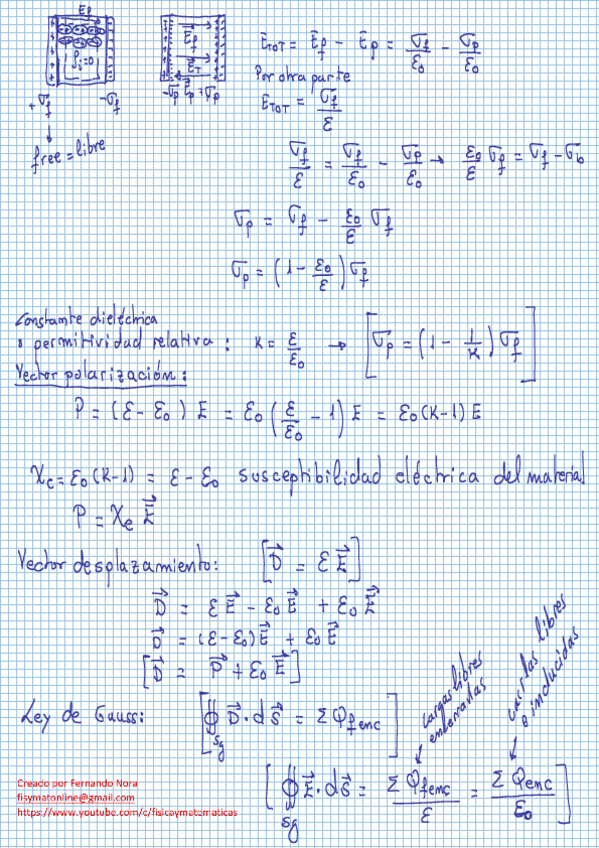 Ef
ρi=0
+σf -σf
free = libre
E⃗f
E⃗T
-σp E⃗p +σp
E⃗TOT = E⃗f - E⃗p = σf/ε0 - σp/ε0
Por otra parte
E⃗TOT = σf/ε
σf/ε = σf/ε0 - σp/ε0 → ε0/ε σf = σf - σb
σp = σf - ε0/ε σf
σp = (1 - ε0/ε) σf
Constante dieléctrica
o permitividad relativa : K = ε/ε0 → [σp = (1 - 1/K) σf]
Vector polarización :
P = (ε - ε0) E = ε0 (ε/ε0 - 1) E = ε0 (K-1) E
χe = ε0 (K-1) = ε - ε0 susceptibilidad eléctrica del material
P = χe E⃗
Vector desplazamiento: [D⃗ = ε E⃗]
D⃗ = ε E⃗ - ε0 E⃗ + ε0 E⃗
D⃗ = (ε - ε0) E⃗ + ε0 E⃗
[D⃗ = P⃗ + ε0 E⃗]
Ley de Gauss: [∯sg D⃗ · dS⃗ = Σ Qfenc]
cargas libres
encerradas
libres
e inducidas
[∯sg E⃗ · dS⃗ = Σ Qfenc/ε = Σ Qenc/ε0]
Creado por Fernando Nora
fisymatonline@gmail.com
https://www.youtube.com/c/fisicaymatematicas